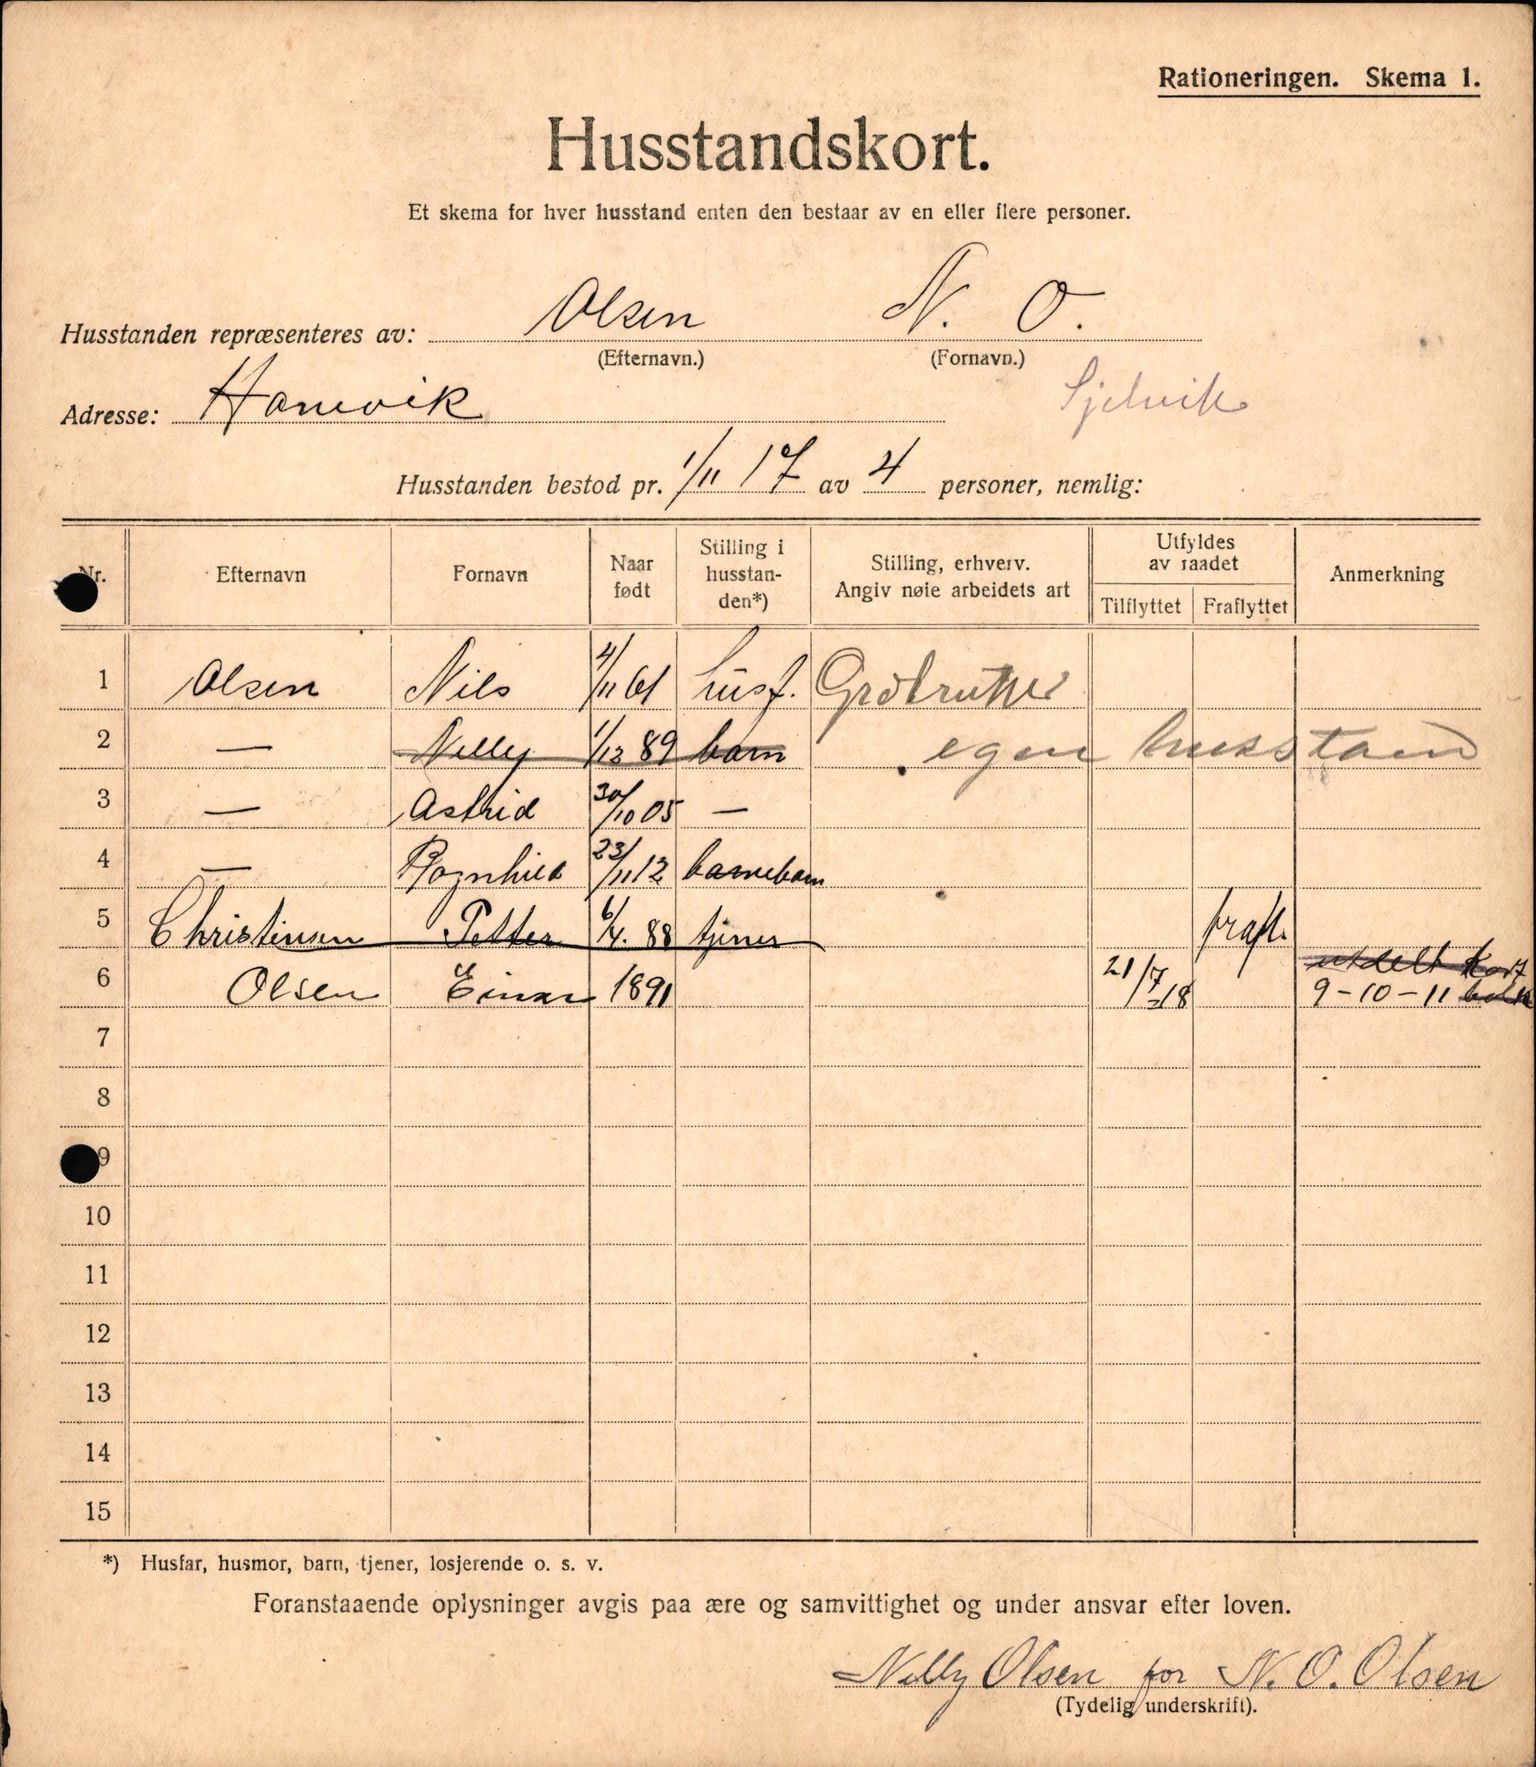 Rationeringen. Skema 1.
Husstandskort.
Et skema for hver husstand enten den bestaar av en eller flere personer.
Husstanden repræsenteres av: Olsen N. O.
(Efternavn.) (Fornavn.)
Adresse: Hamvik Sjelvik
Husstanden bestod pr. 1/11 17 av 4 personer, nemlig:
Nr. Efternavn Fornavn Naar født Stilling i husstan-den*) Stilling, erhverv. Angiv nøie arbeidets art Utfyldes av raadet Tilflyttet Fraflyttet Anmerkning
1 Olsen Nils 4/11 61 husf.
2 — Nelly 1/12 89 barn egen husstand
3 — Astrid 30/10 05 —
4 — Ragnhild 23/11 12 barnebarn
5 Christensen Petter 6/4. 88 tjener frafl.
6 Olsen Einar 1891 21/7 18 utdelt kort
9-10-11
7
8
9
10
11
12
13
14
15
*) Husfar, husmor, barn, tjener, losjerende o. s. v.
Foranstaaende oplysninger avgis paa ære og samvittighet og under ansvar efter loven.
Nelly Olsen for N. O. Olsen
(Tydelig underskrift).